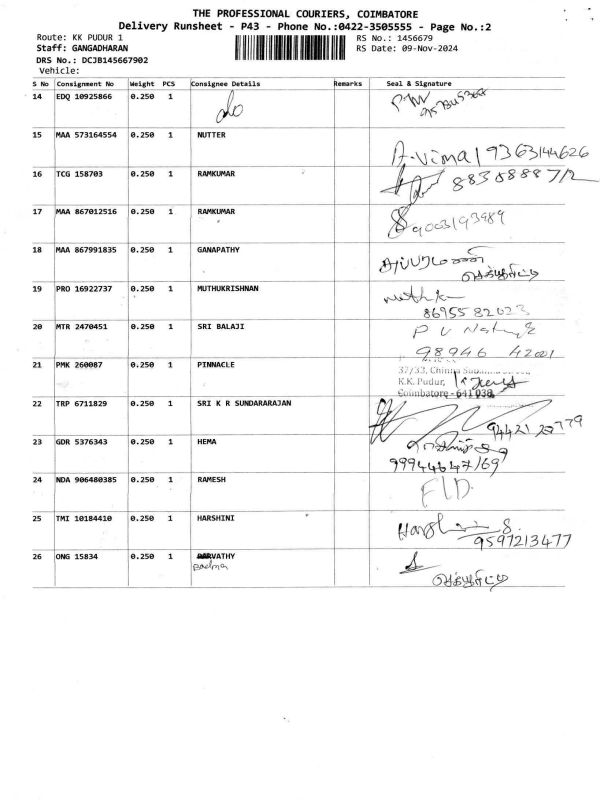 THE PROFESSIONAL COURIERS, COIMBATORE
Delivery Runsheet - P43 - Phone No.:0422-3505555 - Page No.:2
Route: KK PUDUR 1 RS No.: 1456679
Staff: GANGADHARAN RS Date: 09-Nov-2024
DRS No.: DCJB145667902
Vehicle:
S No Consignment No Weight PCS Consignee Details Remarks Seal & Signature
14 EDQ 10925866 0.250 1
15 MAA 573164554 0.250 1 NUTTER
A.Vimal 9363144626
16 TCG 158703 0.250 1 RAMKUMAR
17 MAA 867012516 0.250 1 RAMKUMAR
9003193989
18 MAA 867991835 0.250 1 GANAPATHY
செக்யூரிட்டி
19 PRO 16922737 0.250 1 MUTHUKRISHNAN
8695582023
20 MTR 2470451 0.250 1 SRI BALAJI
98946 42001
21 PMK 260087 0.250 1 PINNACLE
37/33,
K.K. Pudur,
Coimbatore - 641 038
22 TRP 6711829 0.250 1 SRI K R SUNDARARAJAN
23 GDR 5376343 0.250 1 HEMA
9994464769
24 NDA 906480385 0.250 1 RAMESH
25 TMI 10184410 0.250 1 HARSHINI
Harshini S.
9597213477
26 ONG 15834 0.250 1 PARVATHY
Padma
செக்யூரிட்டி